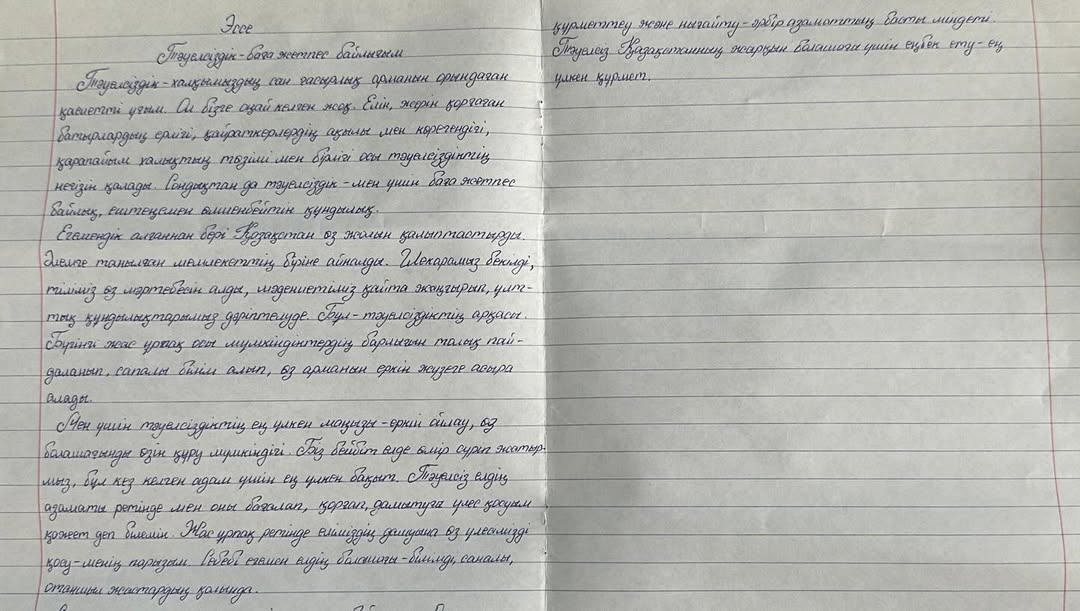 Эссе
Тәуелсіздік - баға жетпес байлығым
Тәуелсіздік - халқымыздың сан ғасырлық арманын орындаған
қасиетті ұғым. Ол бізге оңай келген жоқ. Елін, жерін қорғаған
батырлардың ерлігі, қайраткерлердің ақылы мен көрегендігі,
қарапайым халықтың төзімі мен бірлігі осы тәуелсіздіктің
негізін қалады. Сондықтан да тәуелсіздік - мен үшін баға жетпес
байлық, ештеңемен өлшенбейтін құндылық.
Егемендік алғаннан бері Қазақстан өз жолын қалыптастырды.
Әлемге танылған мемлекеттің біріне айналды. Шекарамыз бекілді,
тіліміз өз мәртебесін алды, мәдениетіміз қайта жаңғырып, ұлт-
тық құндылықтарымыз дәріптелуде. Бұл - тәуелсіздіктің арқасы.
Бүгінгі жас ұрпақ осы мүмкіндіктердің барлығын толық пай-
даланып, сапалы білім алып, өз арманын еркін жүзеге асыра
алады.
Мен үшін тәуелсіздіктің ең үлкен маңызы - еркін ойлау, өз
болашағыңды өзің құру мүмкіндігі. Біз бейбіт елде өмір сүріп жатыр-
мыз, бұл кез келген адам үшін ең үлкен бақыт. Тәуелсіз елдің
азаматы ретінде мен оны бағалап, қорғап, дамытуға үлес қосуым
қажет деп білемін. Жас ұрпақ ретінде еліміздің дамуына өз үлесімізді
қосу - менің парызым. Себебі егемен елдің болашағы - білімді, саналы,
отаншыл жастардың қолында.
құрметтеу және нығайту - әрбір азаматтың басты міндеті.
Тәуелсіз Қазақстанның жарқын болашағы үшін еңбек ету - ең
үлкен құрмет.